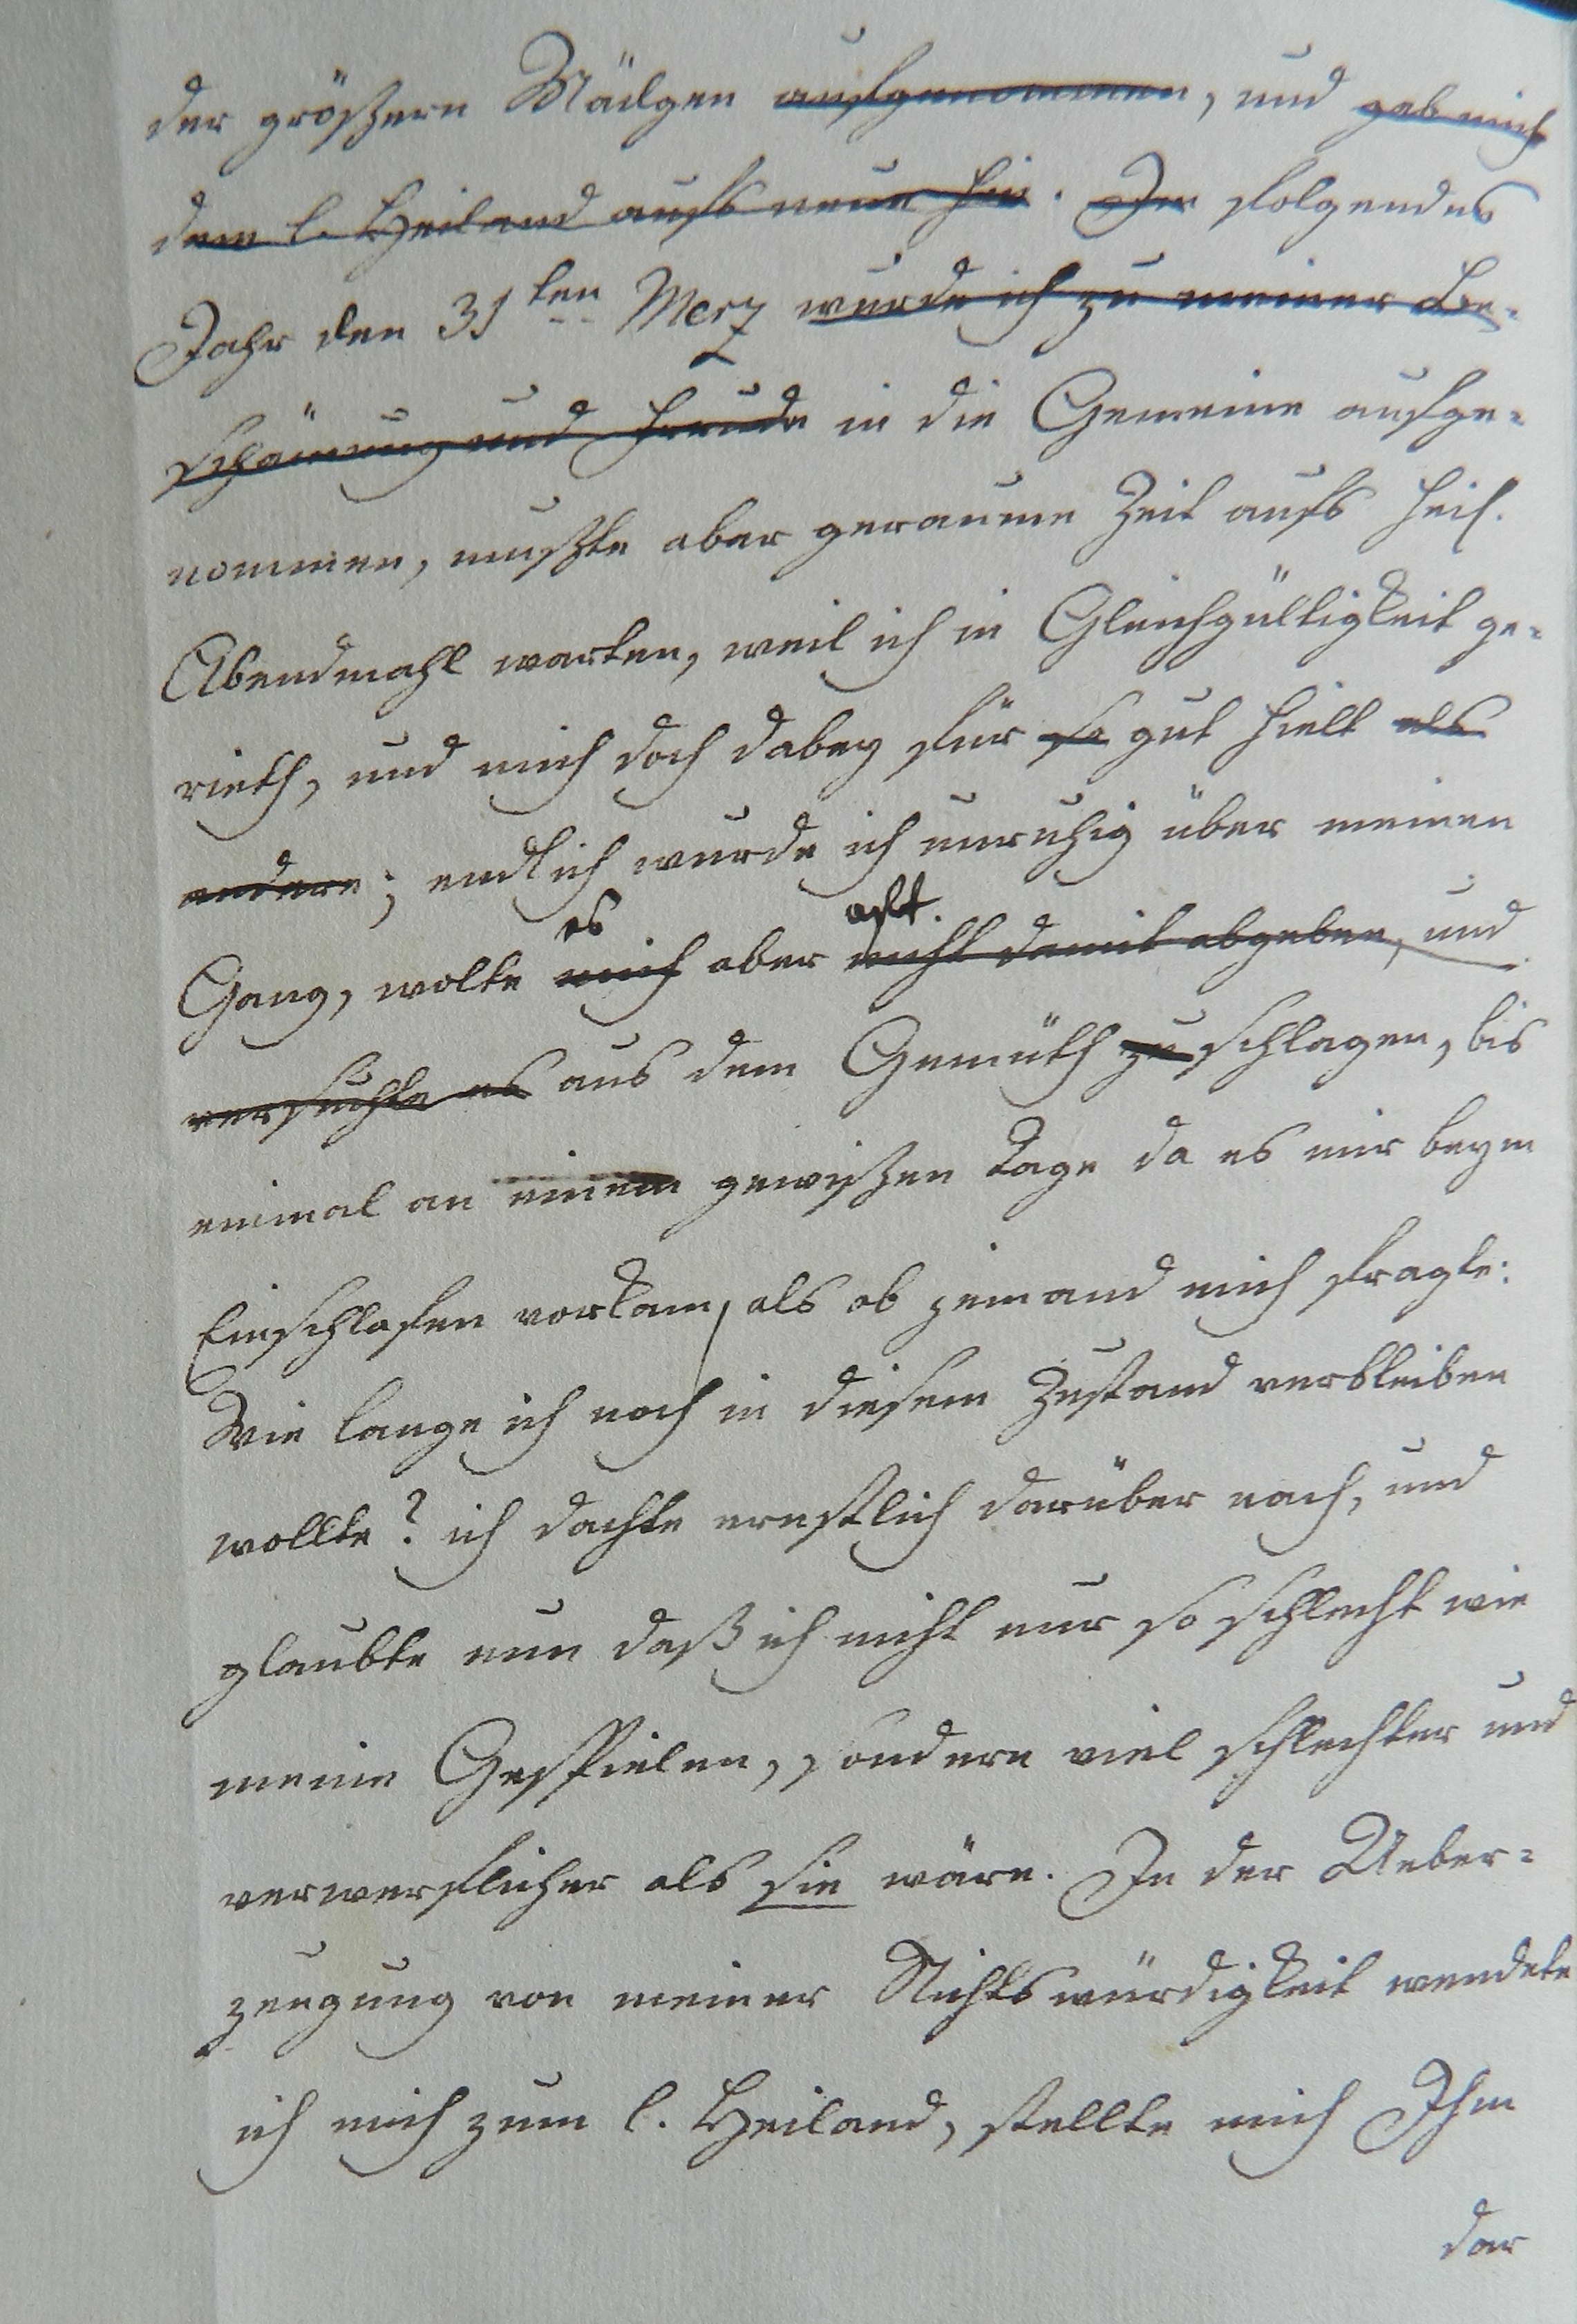 der größern Mädgen aufgenommen, und gab mich
dem l. Heiland aufs neue hin. Im folgendes
Jahr den 31ten Merz wurde ich zu meiner Be-
schämung und Freude in die Gemeine aufge-
nommen, mußte aber geraume Zeit aufs heil.
Abendmahl warten, weil ich in Gleichgültigkeit ge-
rieth, und mich doch dabey für so gut hielt als
andere; endlich wurde ich unruhig über meinen
es oft.
Gang, wolte mich aber nicht damit abgeben, und
versuchte es aus dem Gemüth zu schlagen, bis
einmal an einem gewißen Tage da es mir beym
Einschlafen vorkam, als ob jemand mich fragte:
Wie lange ich noch in diesem Zustand verbleiben
wollte? ich dachte ernstlich darüber nach, und
glaubte nun daß ich nicht nur so schlecht wie
meine Gespielen, sondern viel schlechter und
verwerflicher als sie wäre. In der Ueber-
zeugung von meiner Nichtswürdigkeit wendete
ich mich zum l. Heiland, stellte mich Ihm
dar